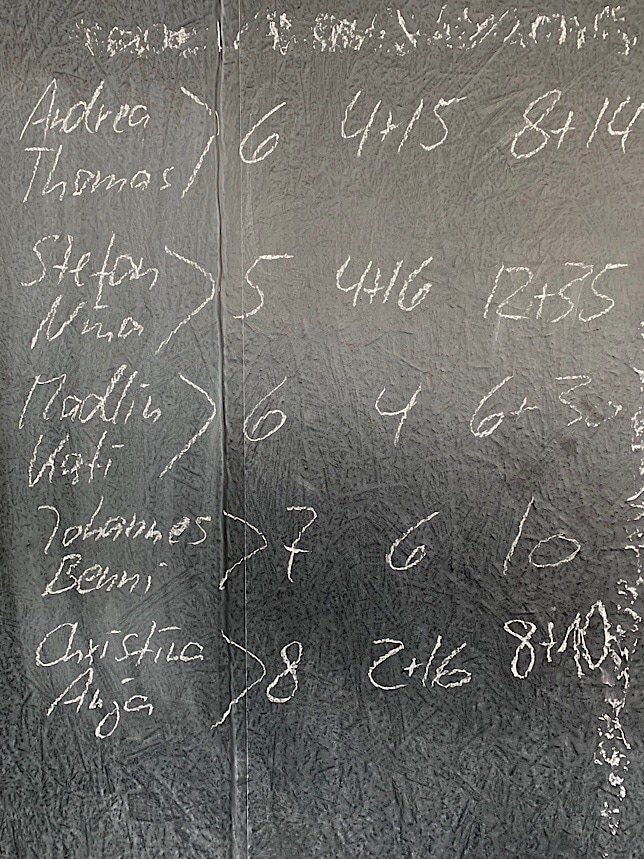 Andrea > 6 4+15 8+14
Thomas
Stefan > 5 4+16 12+35
Nina
Madlin > 6 4 6+
Kati
Johannes > 7 6 10
Benni
Christina > 8 2+16 8+10
Anja